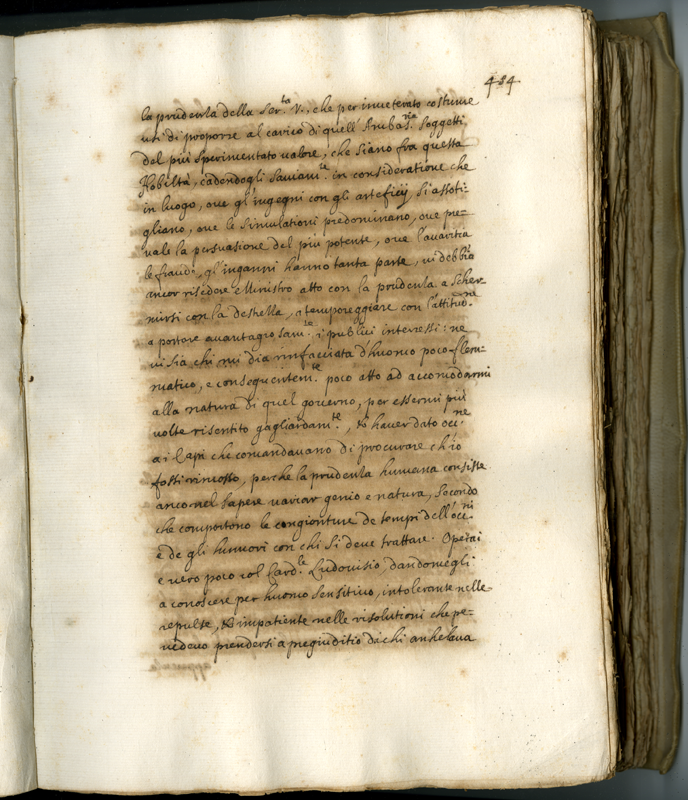 434
la prudenza della Ser.ta V., che per inueterato costume
usi di proporre al carico di quell' Ambas.ria Soggetti
del più sperimentato valore, che siano fra questa
Nobiltà, cadendogli sauiam.te in consideratione che
in luogo, oue gl'ingegni con gli arteficij si assoti-
gliano, oue le simulationi predominano, oue pre-
uale la persuasione del più potente, oue l'auaritia
le fraudi, gl'inganni hanno tanta parte, ui debbia
ancor risedere Ministro atto con la prudenza a scher-
mirsi con la destrezza, a temporeggiare con l'attitud.ne
a portare auantaggiosam.te i publici interessi: ne
ui sia chi mi dia rinfacciata d'huomo poco flem-
matico, e conseguentem.te poco atto ad accomodarmi
alla natura di quel gouerno, per essermi più
uolte risentito gagliardam.te, & hauer dato occ.ne
a i Capi che comandauano di procurare ch'io
fossi rimosso, perche la prudenza humana consiste
anco nel sapere uariar genio e natura, secondo
che comportono le congionture de tempi dell'occ.ni
e de gli humori con chi si deue trattare. Operai
e uero poco col Card.le Ludouisio, dandomegli
a conoscere per huomo sensitiuo, intolerante nelle
repulse, & impatiente nelle risolutioni che pe-
uedeuo prendersi a pregiuditio di chi anhelaua